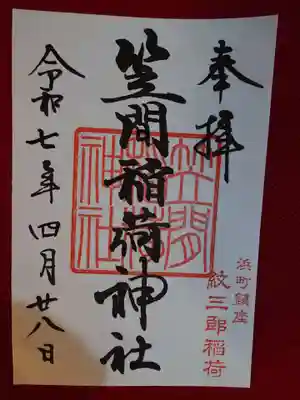 奉拝
浜町鎮座
紋三郎稲荷
笠間稲荷神社
笠間
稲荷
神社
令和七年四月廿八日